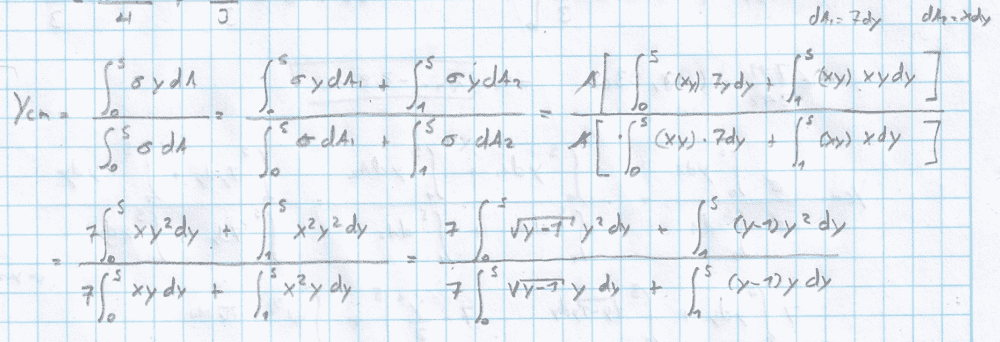 4 3
dA₁ = 7dy dA₂ = xdy
Ycm = ∫₀⁵ σ y dA / ∫₀⁵ σ dA = (∫₀⁵ σ y dA₁ + ∫₁⁵ σ y dA₂) / (∫₀⁵ σ dA₁ + ∫₁⁵ σ dA₂) = A[∫₀⁵ (xy) 7y dy + ∫₁⁵ (xy) xy dy] / A[∫₀⁵ (xy) · 7dy + ∫₁⁵ (xy) x dy]
= (7∫₀⁵ xy² dy + ∫₁⁵ x²y² dy) / (7∫₀⁵ xy dy + ∫₁⁵ x²y dy) = (7∫₀⁵ √(y-1) y² dy + ∫₁⁵ (y-1) y² dy) / (7∫₀⁵ √(y-1) y dy + ∫₁⁵ (y-1) y dy)